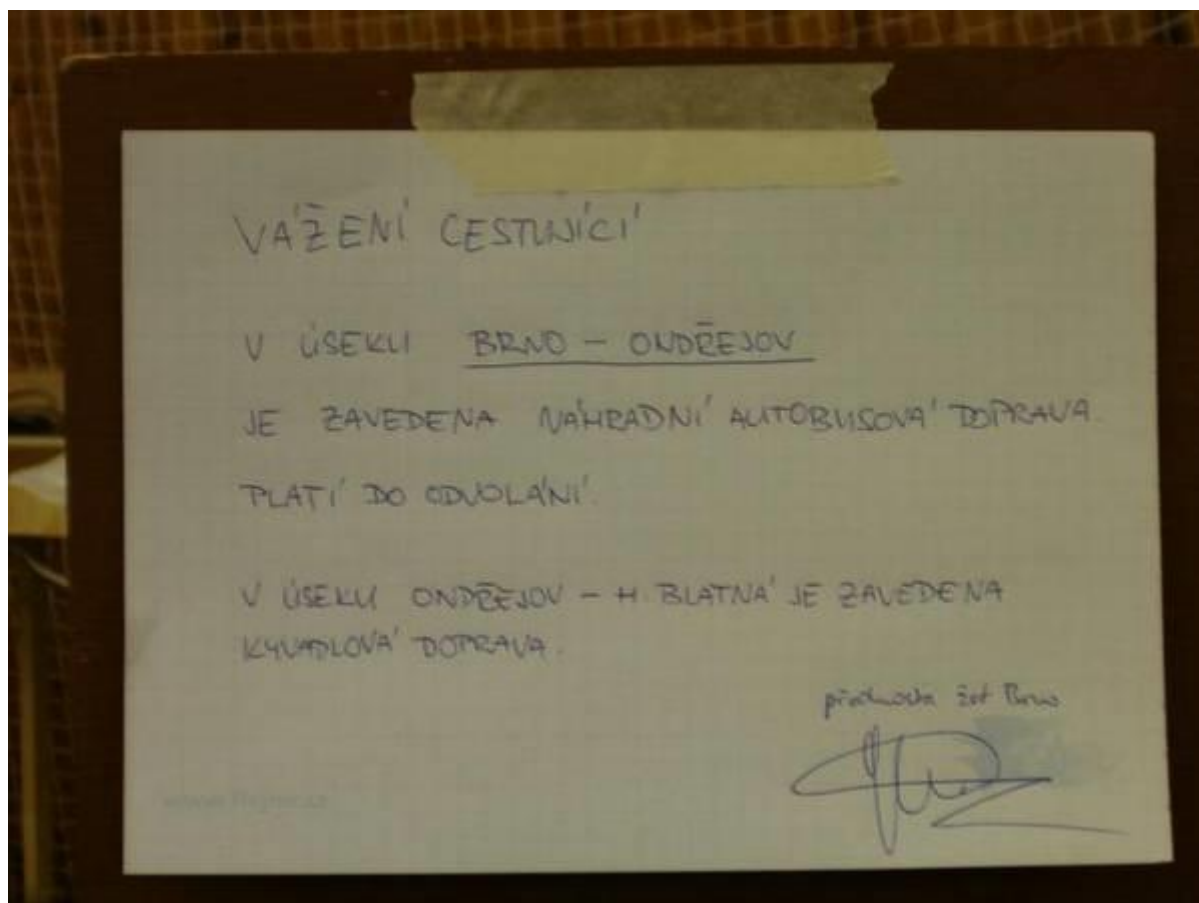 VÁŽENÍ CESTUJÍCÍ
V ÚSEKU BRNO - ONDŘEJOV
JE ZAVEDENA NÁHRADNÍ AUTOBUSOVÁ DOPRAVA.
PLATÍ DO ODVOLÁNÍ.
V ÚSEKU ONDŘEJOV - H. BLATNÁ JE ZAVEDENA
KYVADLOVÁ DOPRAVA.
přednosta žst Brno